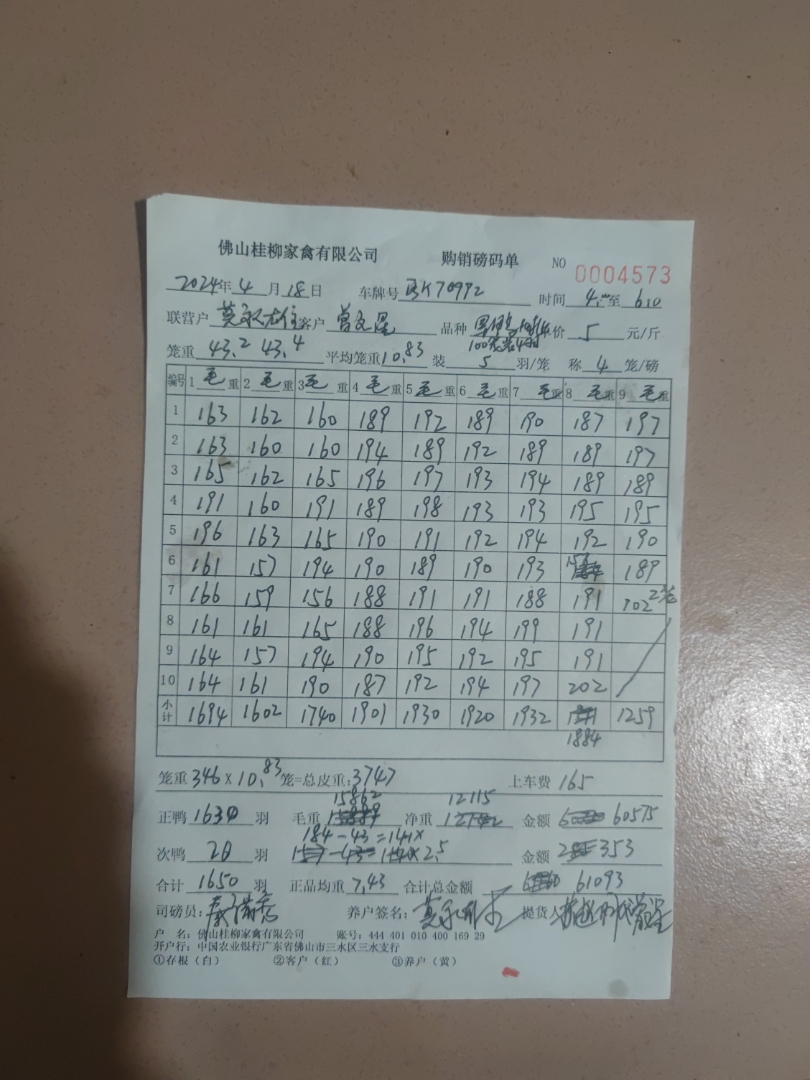 佛山桂柳家禽有限公司 购销磅码单 NO 0004573
2024年 4 月 18 日 车牌号 70992 时间 4 至 610
联营户 莫 客户 曾 品种 单价 5 元/斤
笼重 43.2 43.4 平均笼重 10.83 装 5 羽/笼 称 4 笼/磅
编号 1 毛 重 2 毛 重 3 毛 重 4 毛 重 5 毛 重 6 毛 重 7 毛 重 8 毛 重 9 毛 重
1 163 162 160 189 192 189 190 187 197
2 163 160 160 194 189 192 189 189 197
3 165 162 165 196 197 193 194 189 189
4 191 160 191 189 198 193 193 195 195
5 196 163 165 190 191 192 194 192 190
6 161 157 194 190 189 190 193 189
7 166 159 156 188 191 191 188 191 102
8 161 161 165 188 196 194 199 191
9 164 157 194 190 195 192 195 191
10 164 161 190 187 192 194 197 202
小计 1694 1602 1740 1901 1930 1920 1932 1259
1884
笼重 346 × 10.83 笼=总皮重: 3747 上车费 165
15862 12115
正鸭 1630 羽 毛重 净重 金额 60575
184-43=141×
次鸭 20 羽 2.5 金额 353
合计 1650 羽 正品均重 7.43 合计总金额 61093
司磅员: 养户签名: 莫 提货人
户 名: 佛山桂柳家禽有限公司 账号: 444 401 010 400 169 29
开户行: 中国农业银行广东省佛山市三水区三水支行
①存根（白） ②客户（红） ③养户（黄）